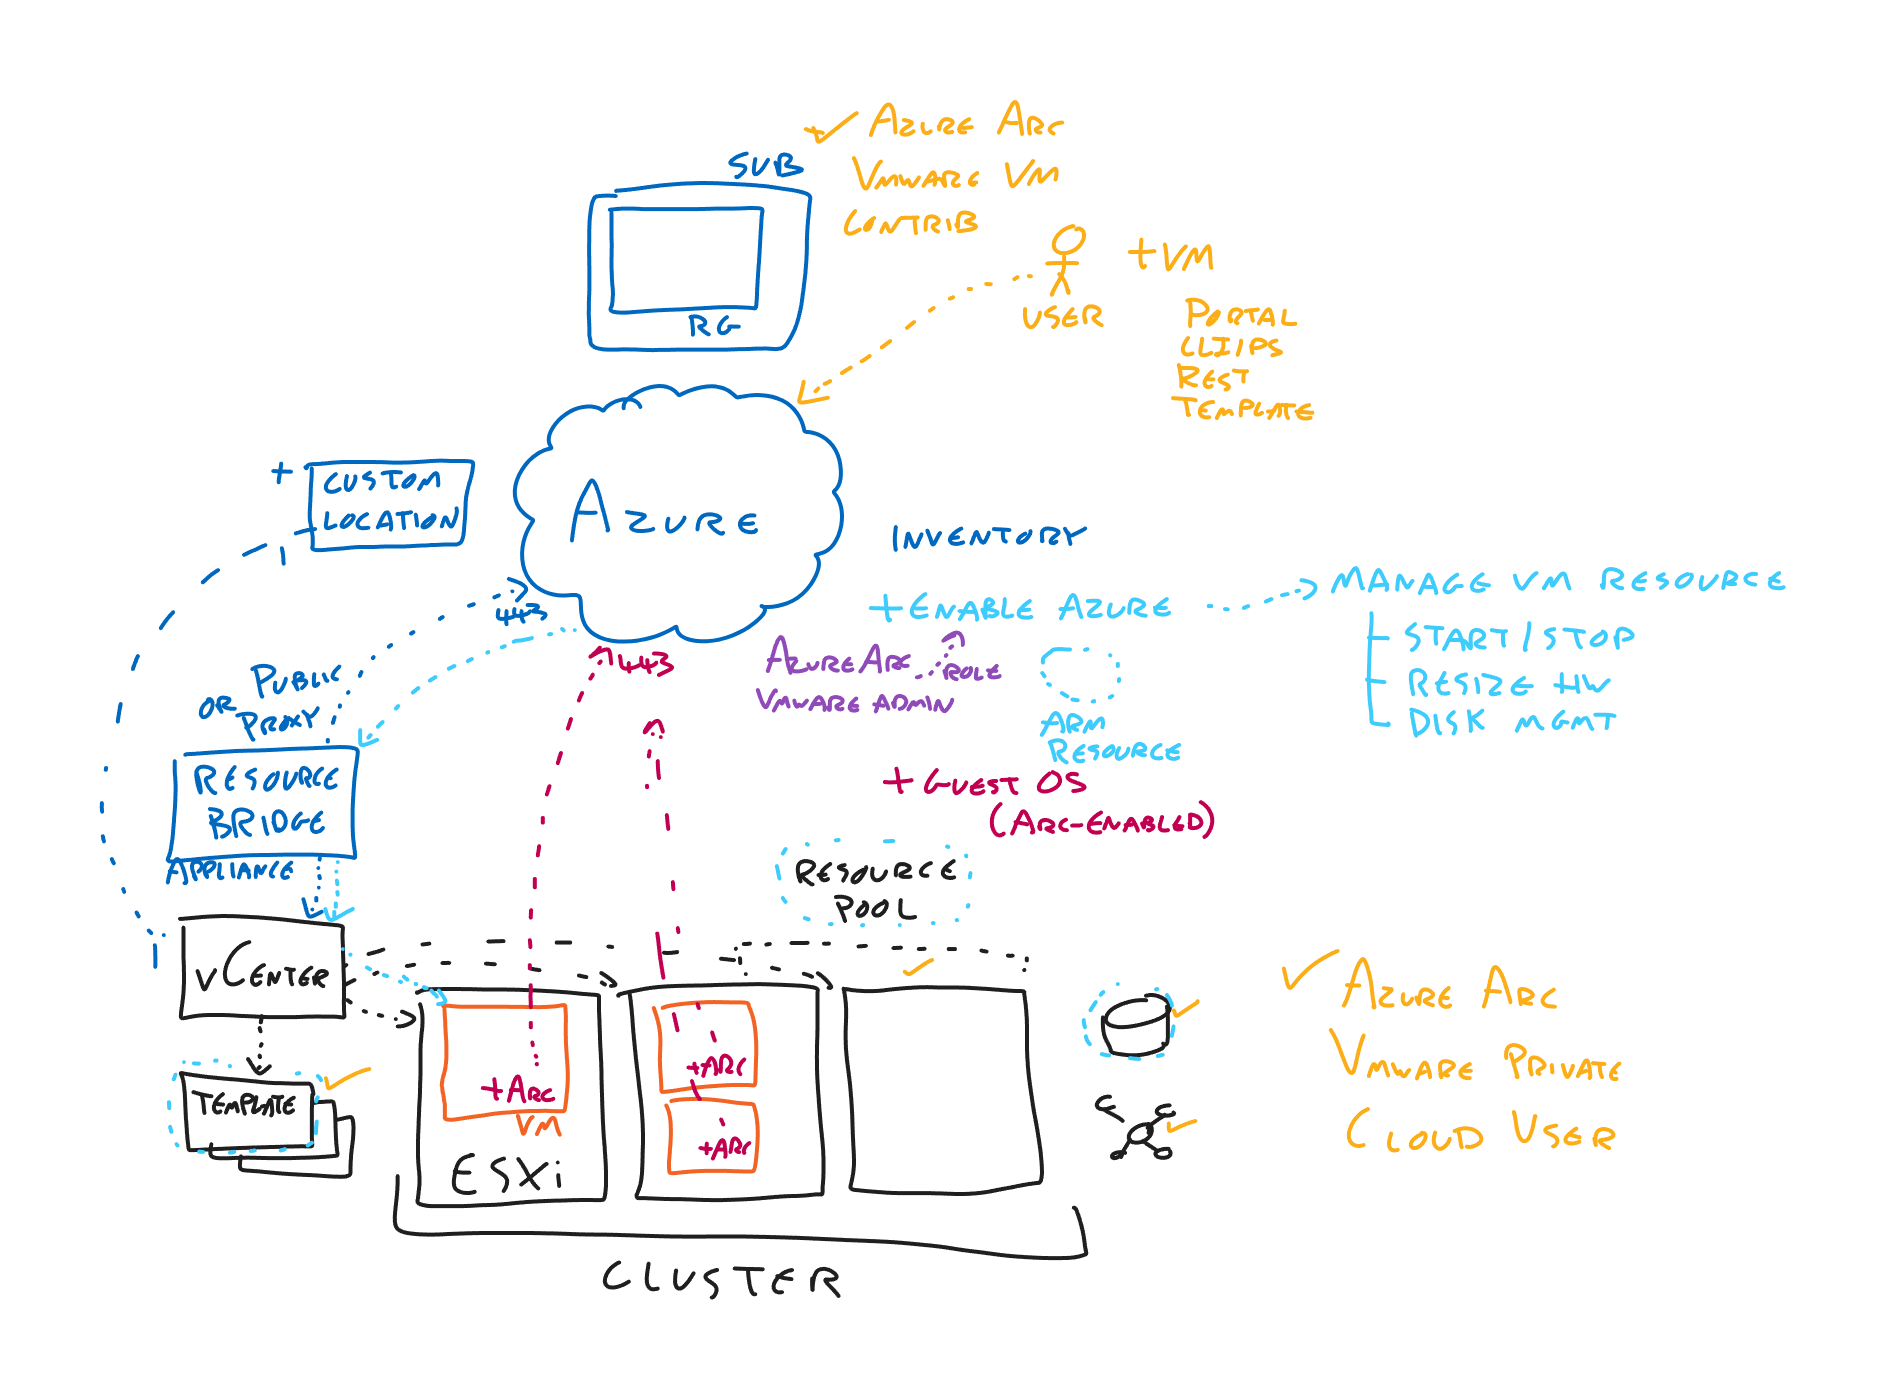 AZURE ARC
VMWARE VM
CONTRIB
SUB
RG
USER
+VM
PORTAL
CLI/PS
REST
TEMPLATE
+
CUSTOM
LOCATION
AZURE
INVENTORY
+ENABLE AZURE
MANAGE VM RESOURCE
START/STOP
RESIZE HW
DISK MGMT
443
443
AZURE ARC
VMWARE ADMIN
ROLE
ARM
RESOURCE
PUBLIC
OR PROXY
RESOURCE
BRIDGE
APPLIANCE
+GUEST OS
(ARC-ENABLED)
RESOURCE
POOL
VCENTER
TEMPLATE
+ARC
VM
ESXi
+ARC
+ARC
CLUSTER
AZURE ARC
VMWARE PRIVATE
CLOUD USER